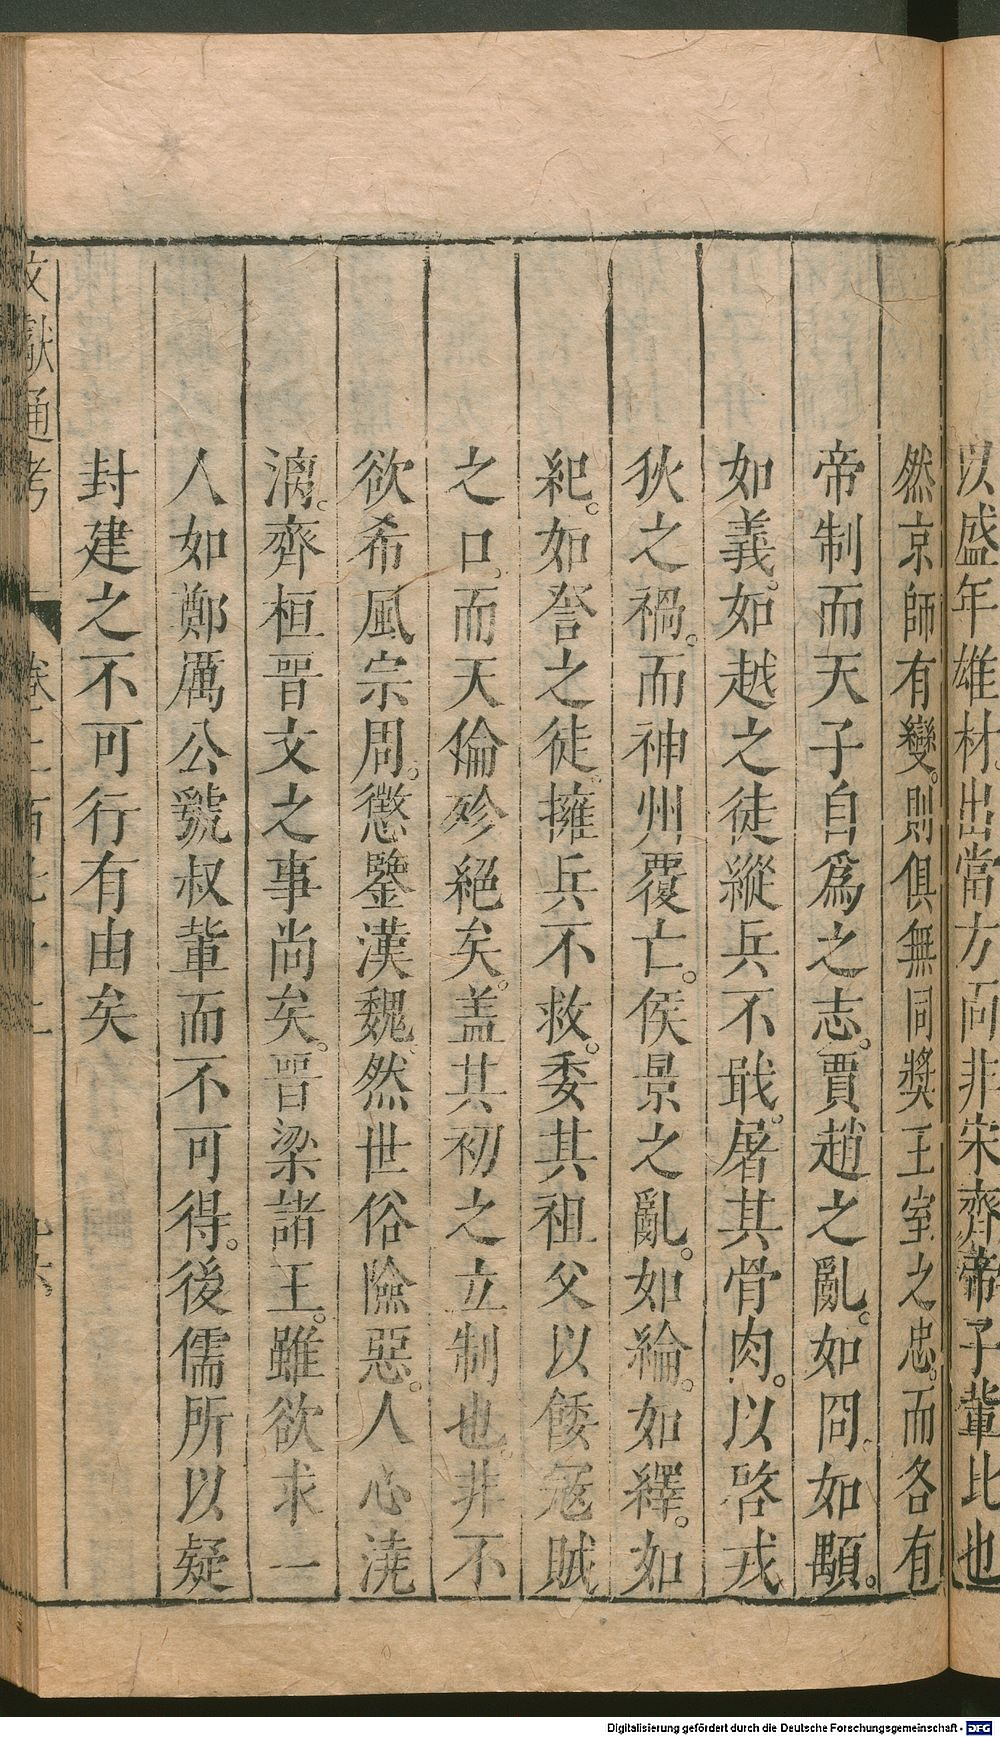 以盛年雄材。出當方面非宋齊帝子輩比也
然京師有變。則俱無同獎王室之忠。而各有
帝制而天子自爲之志。賈趙之亂。如冏。如顒。
如義。如越之徒縱兵不戢。屠其骨肉。以啓戎
狄之禍。而神州覆亡。侯景之亂。如綸。如繹。如
紀。如詧之徒。擁兵不救。委其祖父以餧寇賊
之口。而天倫殄絕矣。蓋其初之立制也。非不
欲希風宗周。懲鑒漢魏。然世俗險惡。人心澆
漓。齊桓晉文之事尚矣。晉梁諸王。雖欲求一
人如鄭厲公虢叔輩而不可得。後儒所以疑
封建之不可行有由矣
文獻通考
Digitalisierung gefördert durch die Deutsche Forschungsgemeinschaft - DFG